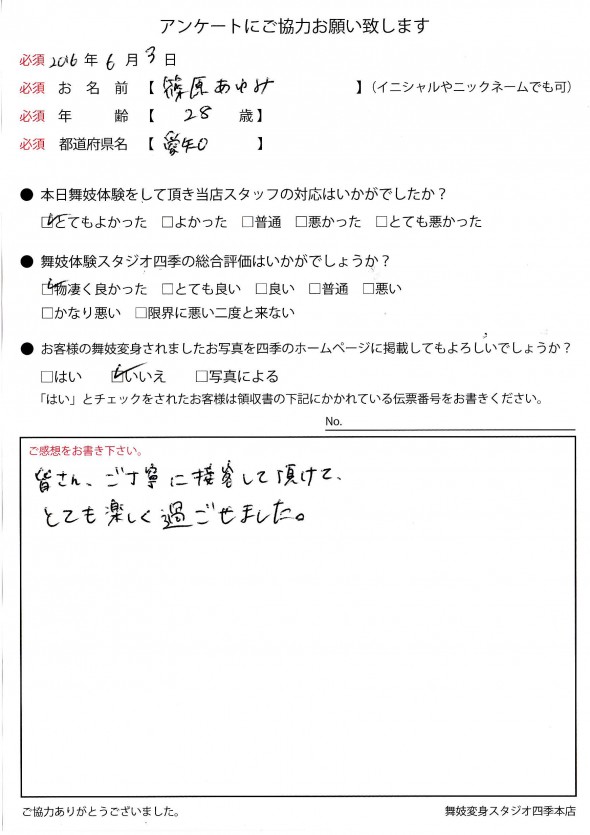 アンケートにご協力お願い致します
必須 2016年6月3日
必須 お名前【篠原あゆみ】（イニシャルやニックネームでも可）
必須 年齢【28歳】
必須 都道府県名【愛知】
● 本日舞妓体験をして頂き当店スタッフの対応はいかがでしたか？
☑とてもよかった □よかった □普通 □悪かった □とても悪かった
● 舞妓体験スタジオ四季の総合評価はいかがでしょうか？
☑物凄く良かった □とても良い □良い □普通 □悪い
□かなり悪い □限界に悪い二度と来ない
● お客様の舞妓変身されましたお写真を四季のホームページに掲載してもよろしいでしょうか？
□はい ☑いいえ □写真による
「はい」とチェックをされたお客様は領収書の下記にかかれている伝票番号をお書きください。
No.
ご感想をお書き下さい。
皆さん、ご丁寧に接客して頂けて、
とても楽しく過ごせました。
ご協力ありがとうございました。 舞妓変身スタジオ四季本店